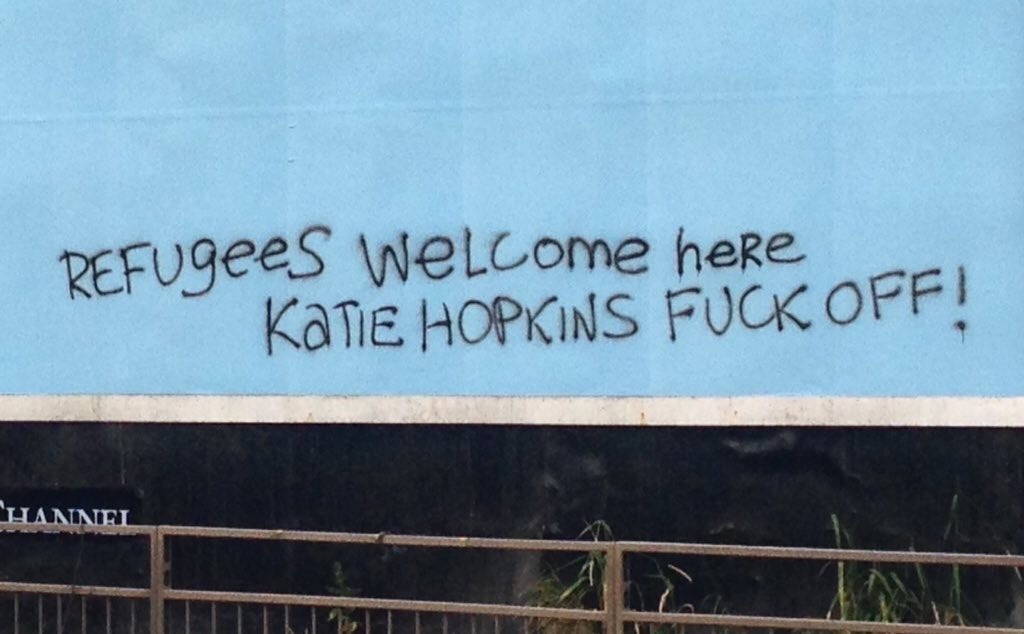 REFUgeeS WeLCome heRe
KaTIE HOPKINS FUCK OFF!
CHANNEL